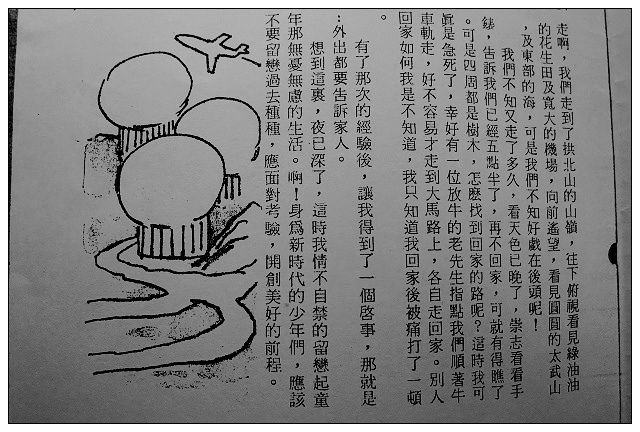 走啊，我們走到了拱北山的山嶺，往下俯視看見綠油油
的花生田及寬大的機場，向前遙望，看見圓圓的太武山
，及東部的海，可是我們不知好戲在後頭呢！
我們不知又走了多久，看天色已晚了，崇志看看手
錶，告訴我們已經五點半了，再不回家，可就有得瞧了
。可是四周都是樹木，怎麼找到回家的路呢？這時我可
眞是急死了，幸好有一位放牛的老先生指點我們順著牛
車軌走，好不容易才走到大馬路上，各自走回家。別人
回家如何我是不知道，我只知道我回家後被痛打了一頓
。
有了那次的經驗後，讓我得到了一個啓事，那就是
：外出都要告訴家人。
想到這裏，夜已深了，這時我情不自禁的留戀起童
年那無憂無慮的生活。啊！身爲新時代的少年們，應該
不要留戀過去種種，應面對考驗，開創美好的前程。